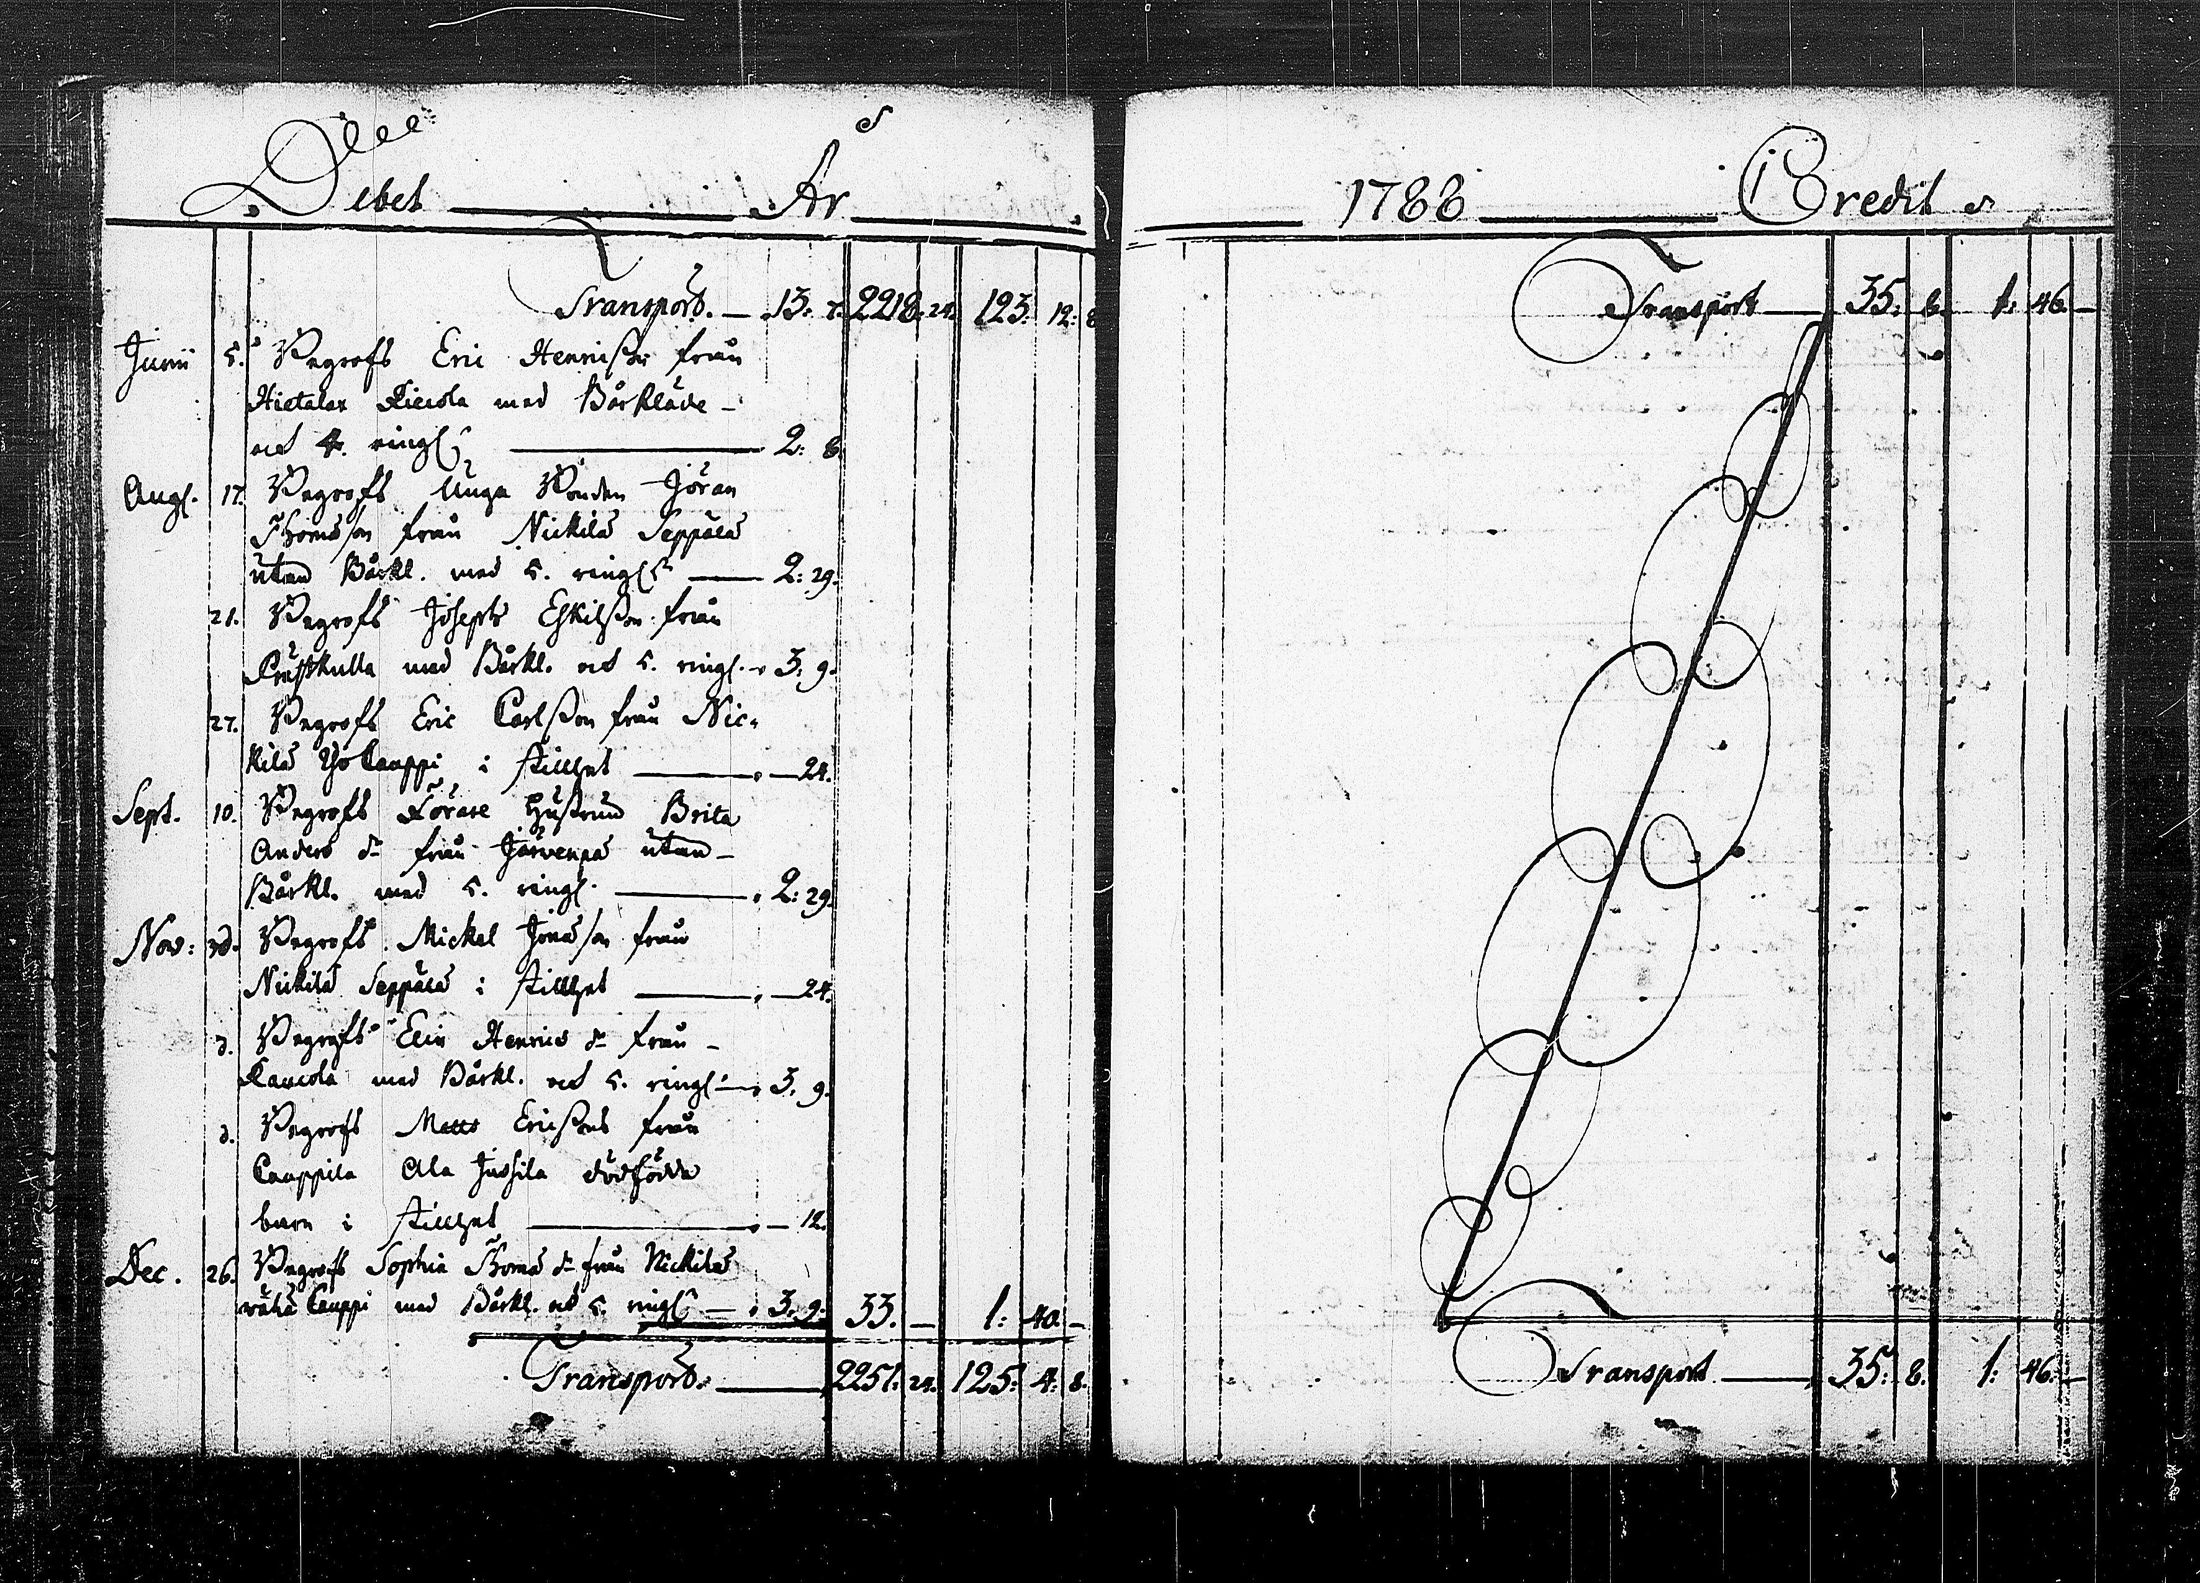 Debet År
Transport. 13. 7. 2218. 24. 123. 12. 8
Junii 5. Begrofs Eric Henricsson från
Hietalax Kiccola med Bårkläde
och 4. ringr 2. 8.
Aug. 17. Begrofs Unga Bonden Jöran
Thomsson från Nickilä Seppälä
utan Bårkl. med 5. ringr 2. 29.
21. Begrofs Joseph Eskilsson från
med Bårkl. och 5. ringr. 3. 9.
27. Begrofs Eric Carlsson från Nic-
kilä Yso Cauppi i stillhet 24.
Sept. 10. Begrofs Förare Hustrun Brita
Anders dr från Järvenpä utan
Bårkl. med 5. ringr. 2. 29.
Nov: 30. Begrofs Mickel Jönsson från
Nickilä Seppälä i stillhet 24.
d. Begrofs Elin Henrics dr från
Kaucola med Bårkl. och 5. ringr. 3. 9.
d. Begrofs Matts Ericssons från
Cauppila Ala Jussila dödfödda
barn i stillhet 12.
Dec. 26. Begrofs Sophia Thoms dr från Nickilä
wähä Cauppi med Bårkl. och 5. ringr 3. 9. 33. — 1. 40. —
Transport. 2251. 24. 125. 4. 8.
1788 Credit
Transport 35. 8. 1. 46. —
Transport 35. 8. 1. 46. —